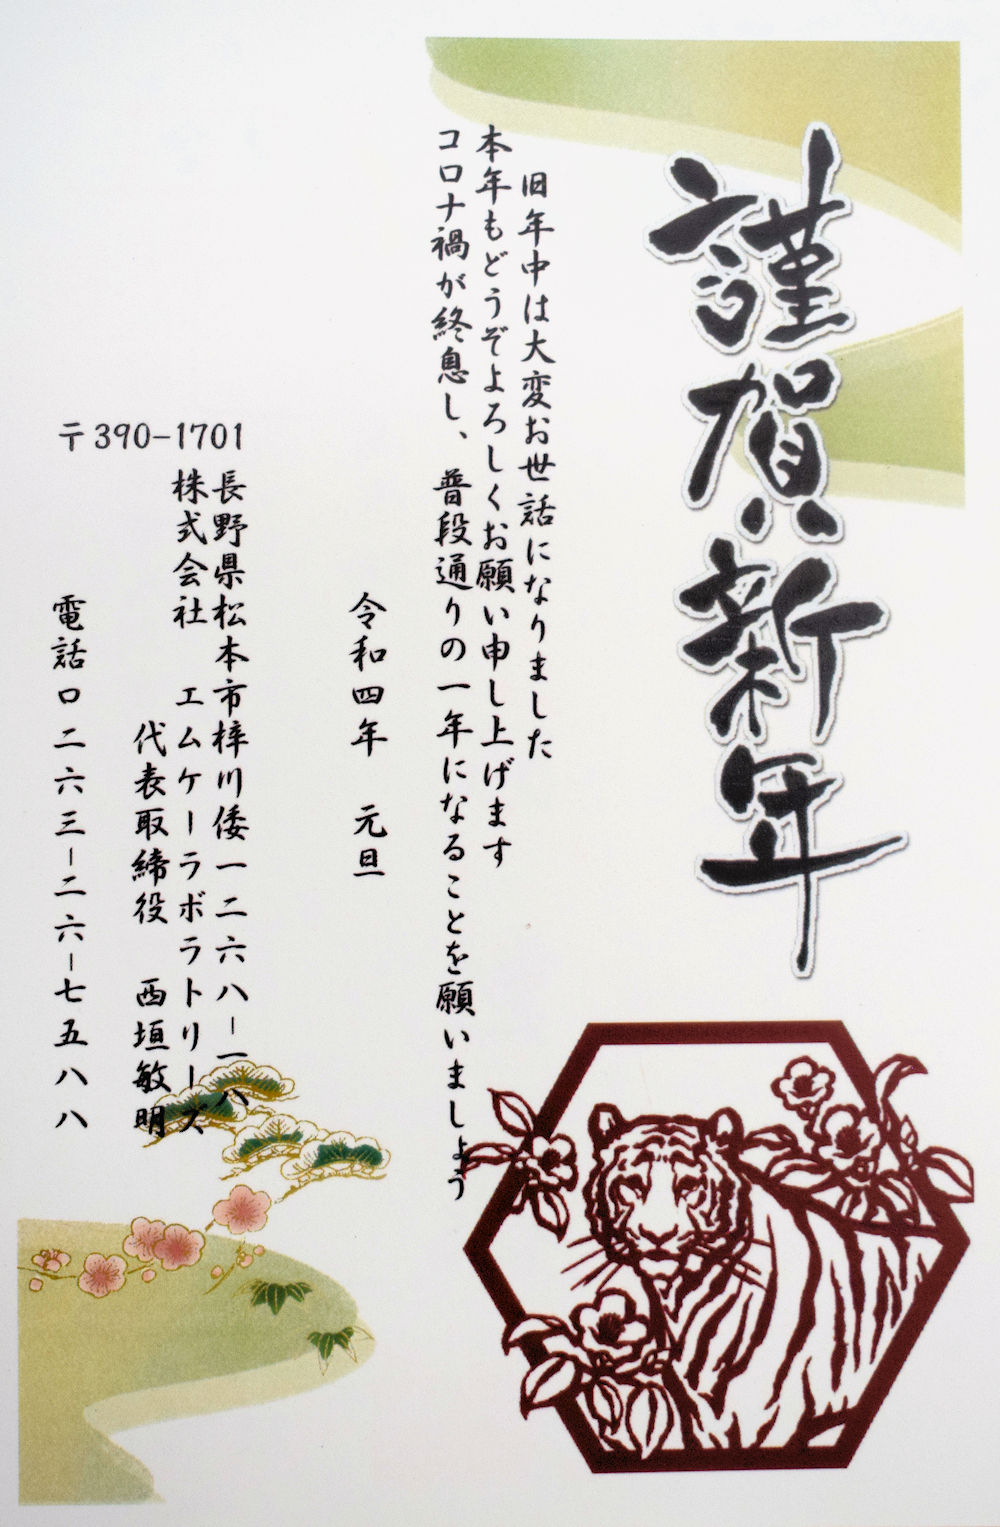 謹賀新年
旧年中は大変お世話になりました
本年もどうぞよろしくお願い申し上げます
コロナ禍が終息し、普段通りの一年になることを願いましょう
令和四年 元旦
〒390-1701
長野県松本市梓川倭一二六八-一八
株式会社 エムケーラボラトリーズ
代表取締役 西垣敏明
電話〇二六三-二六-七五八八